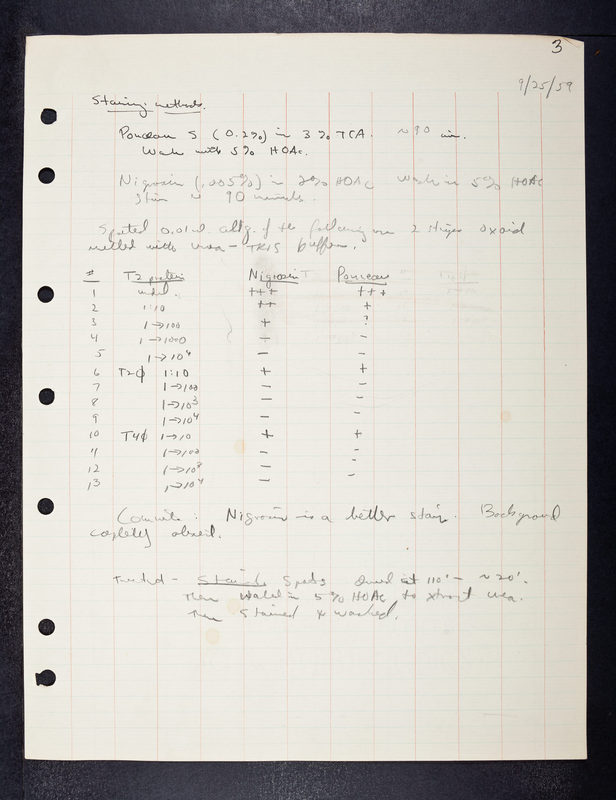 3
9/25/59
Staining methods.
Ponceau S (0.2%) in 3% TCA. ~90 min.
Wash with 5% HOAc.
Nigrosin (.005%) in 2% HOAc wash in 5% HOAc
stain ~ 90 minutes.
Spotted 0.01 ml of the following on 2 strips oxoid
wetted with urea - TRIS buffer.
# T2 protein Nigrosin Ponceau
1 undil. +++ +++
2 1:10 ++ +
3 1→100 + ?
4 1→1000 ÷ -
5 1→10⁴ - -
6 T2ϕ 1:10 + +
7 1→100 - -
8 1→10³ - -
9 1→10⁴ - -
10 T4ϕ 1→10 + +
11 1→100 - -
12 1→10³ - -
13 1→10⁴ - -
Comments: Nigrosin is a better stain. Background
completely absent.
Method - Spots dried at 110° - ~20'.
Then in 5% HOAc to extract urea.
Then stained & washed.